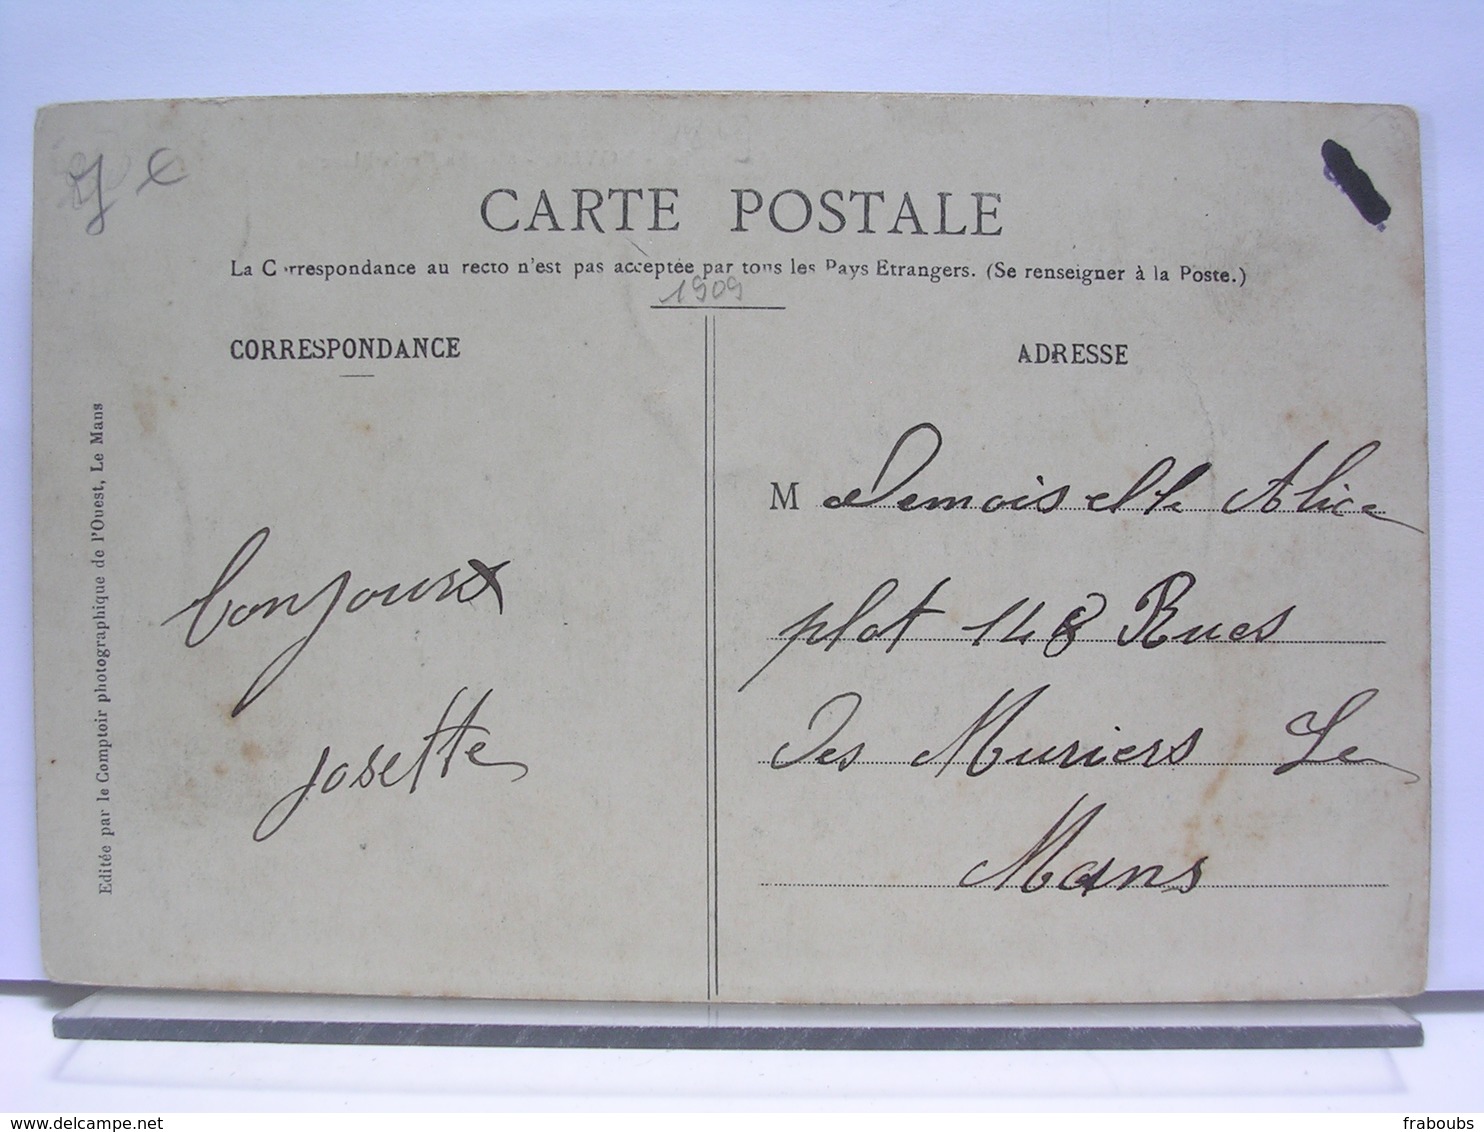 CARTE POSTALE
La Correspondance au recto n'est pas acceptée par tous les Pays Etrangers. (Se renseigner à la Poste.)
1909
CORRESPONDANCE
bonjour
josette
Editée par le Comptoir photographique de l'Ouest, Le Mans
ADRESSE
M adenoiselle Alice
plot 148 Rues
des Muriers Le
Mans
fraboubs